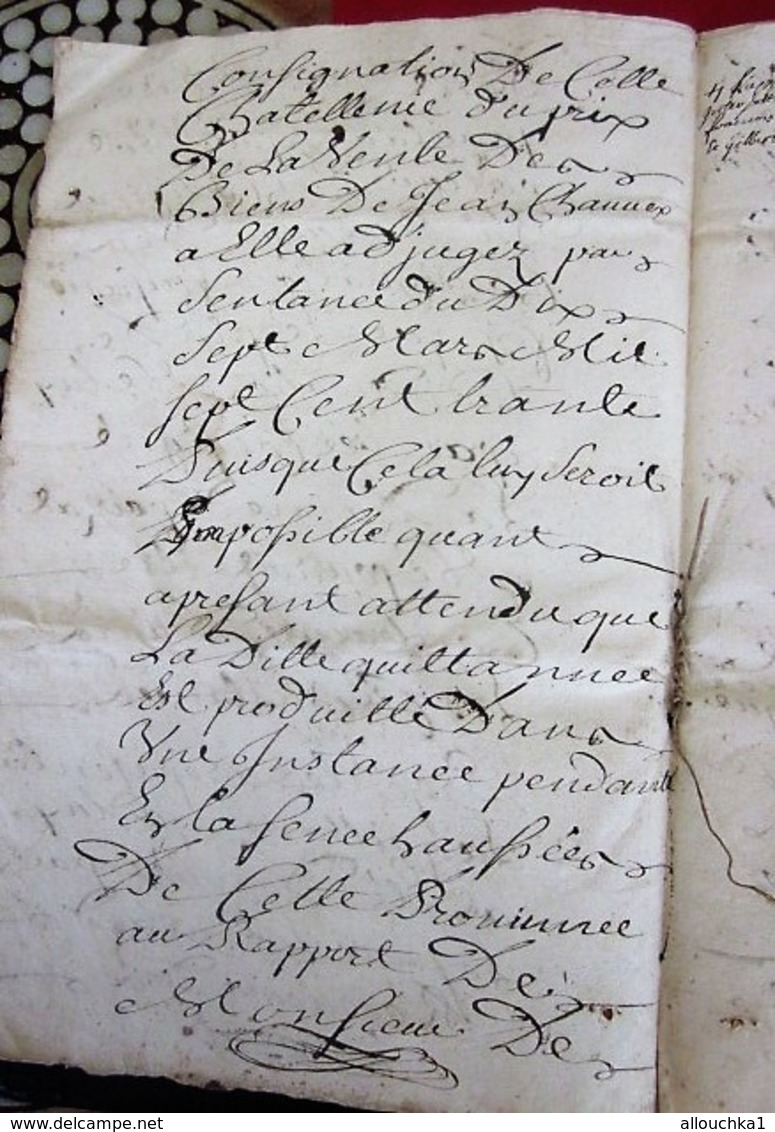 Consignation De Cette
Chatellenie du prix
De La Vente Des
Biens De Jean Chauvex
a Elle adjugez par
Sentance du Dix
Sept Mars Mil
Sept Cent trante
Puisque Cela luy Seroit
Impossible quant
apresant attendu que
La Ditte quittannce
Est produitte Dans
Une Instance pendante
En la Senechaussée
De Cette Provinnce
au Rapport De
Monsieur De
allouchka1